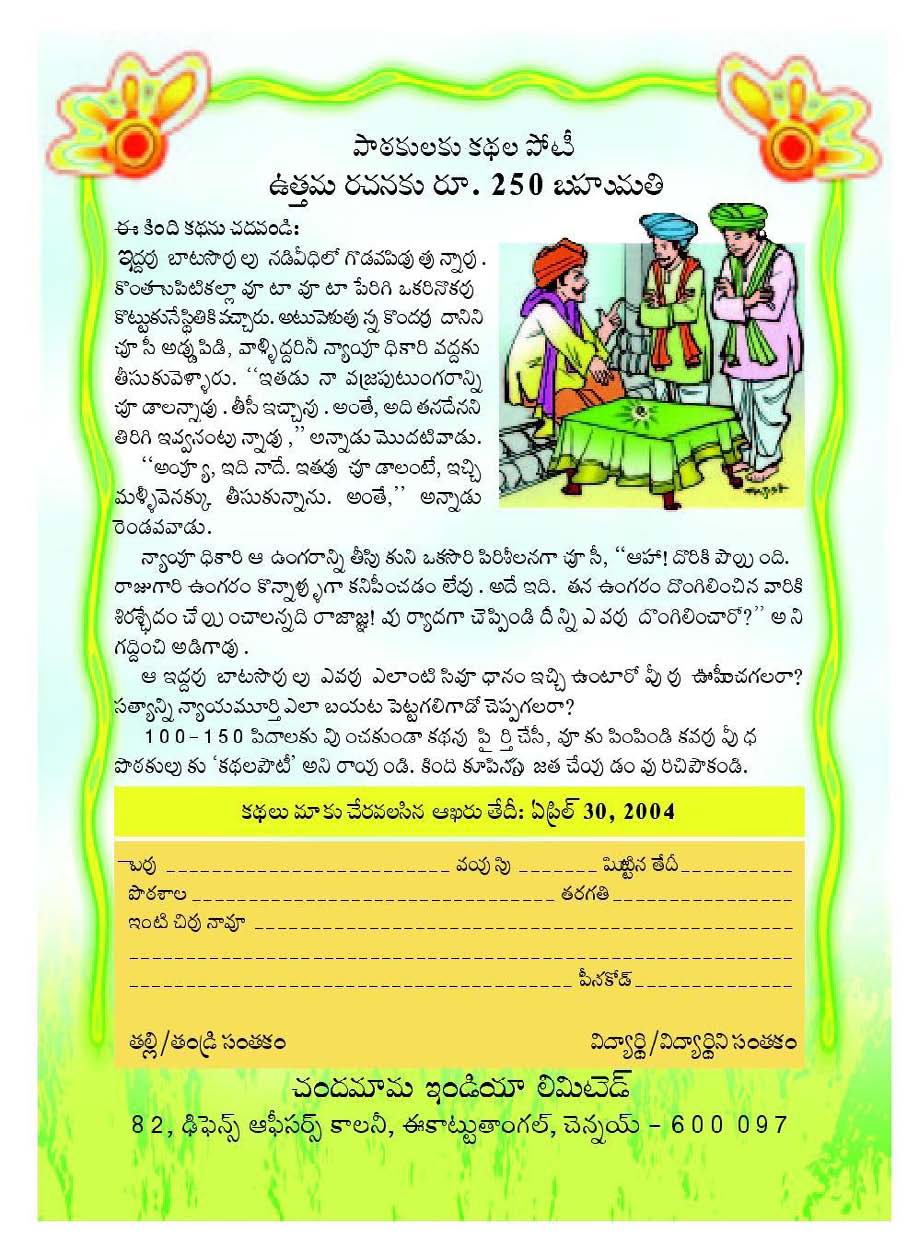 పాఠకులకు కథల పోటీ
ఉత్తమ రచనకు రూ. 250 బహుమతి
ఈ కింది కథను చదవండి:
ఇద్దరు బాటసారులు నడివీధిలో గొడవపడుతున్నారు.
కొంతసేపటికల్లా మాటా మాటా పెరిగి ఒకరినొకరు
కొట్టుకునేస్థితికివచ్చారు. అటువెళుతున్న కొందరు దానిని
చూసీ అడ్డుపడి, వాళ్ళిద్దరినీ న్యాయాధికారి వద్దకు
తీసుకువెళ్ళారు. ‘‘ఇతడు నా వజ్రపుటుంగరాన్ని
చూడాలన్నాడు. తీసీ ఇచ్చాను. అంతే, అది తనదేనని
తిరిగి ఇవ్వనంటున్నాడు,’’ అన్నాడు మొదటివాడు.
‘‘అయ్యా, ఇది నాదే. ఇతడు చూడాలంటే, ఇచ్చి
మళ్ళీవెనక్కు తీసుకున్నాను. అంతే,’’ అన్నాడు
రెండవవాడు.
న్యాయాధికారి ఆ ఉంగరాన్ని తీసుకుని ఒకసారి పరిశీలనగా చూసీ, ‘‘ఆహా! దొరికి పోయింది.
రాజుగారి ఉంగరం కొన్నాళ్ళుగా కనిపించడం లేదు. అదే ఇది. తన ఉంగరం దొంగిలించిన వారికి
శిరశ్ఛేదం చేయించాలన్నది రాజాజ్ఞ! మర్యాదగా చెప్పండి దీన్ని ఎవరు దొంగిలించారో?’’ అని
గద్దించి అడిగాడు.
ఆ ఇద్దరు బాటసారులు ఎవరు ఎలాంటి సమాధానం ఇచ్చి ఉంటారో మీరు ఊహించగలరా?
సత్యాన్ని న్యాయమూర్తి ఎలా బయట పెట్టగలిగాడో చెప్పగలరా?
100-150 పదాలకు మించకుండా కథను పూర్తి చేసీ, మాకు పంపండి కవరు మీద
పాఠకులుకు ‘కథలపోటీ’ అని రాయండి. కింది కూపనును జత చేయడం మరిచిపోకండి.
కథలు మాకు చేరవలసిన ఆఖరు తేదీ: ఏప్రిల్ 30, 2004
పేరు వయసు పుట్టిన తేదీ
పాఠశాల తరగతి
ఇంటి చిరునామా
పిన్‌కోడ్
తల్లి/తండ్రి సంతకం విద్యార్థి/విద్యార్థిని సంతకం
చందమామ ఇండియా లిమిటెడ్
82, ఢిఫెన్స్ ఆఫీసర్స్ కాలనీ, ఈకాట్టుతాంగల్, చెన్నయ్ – 600 097